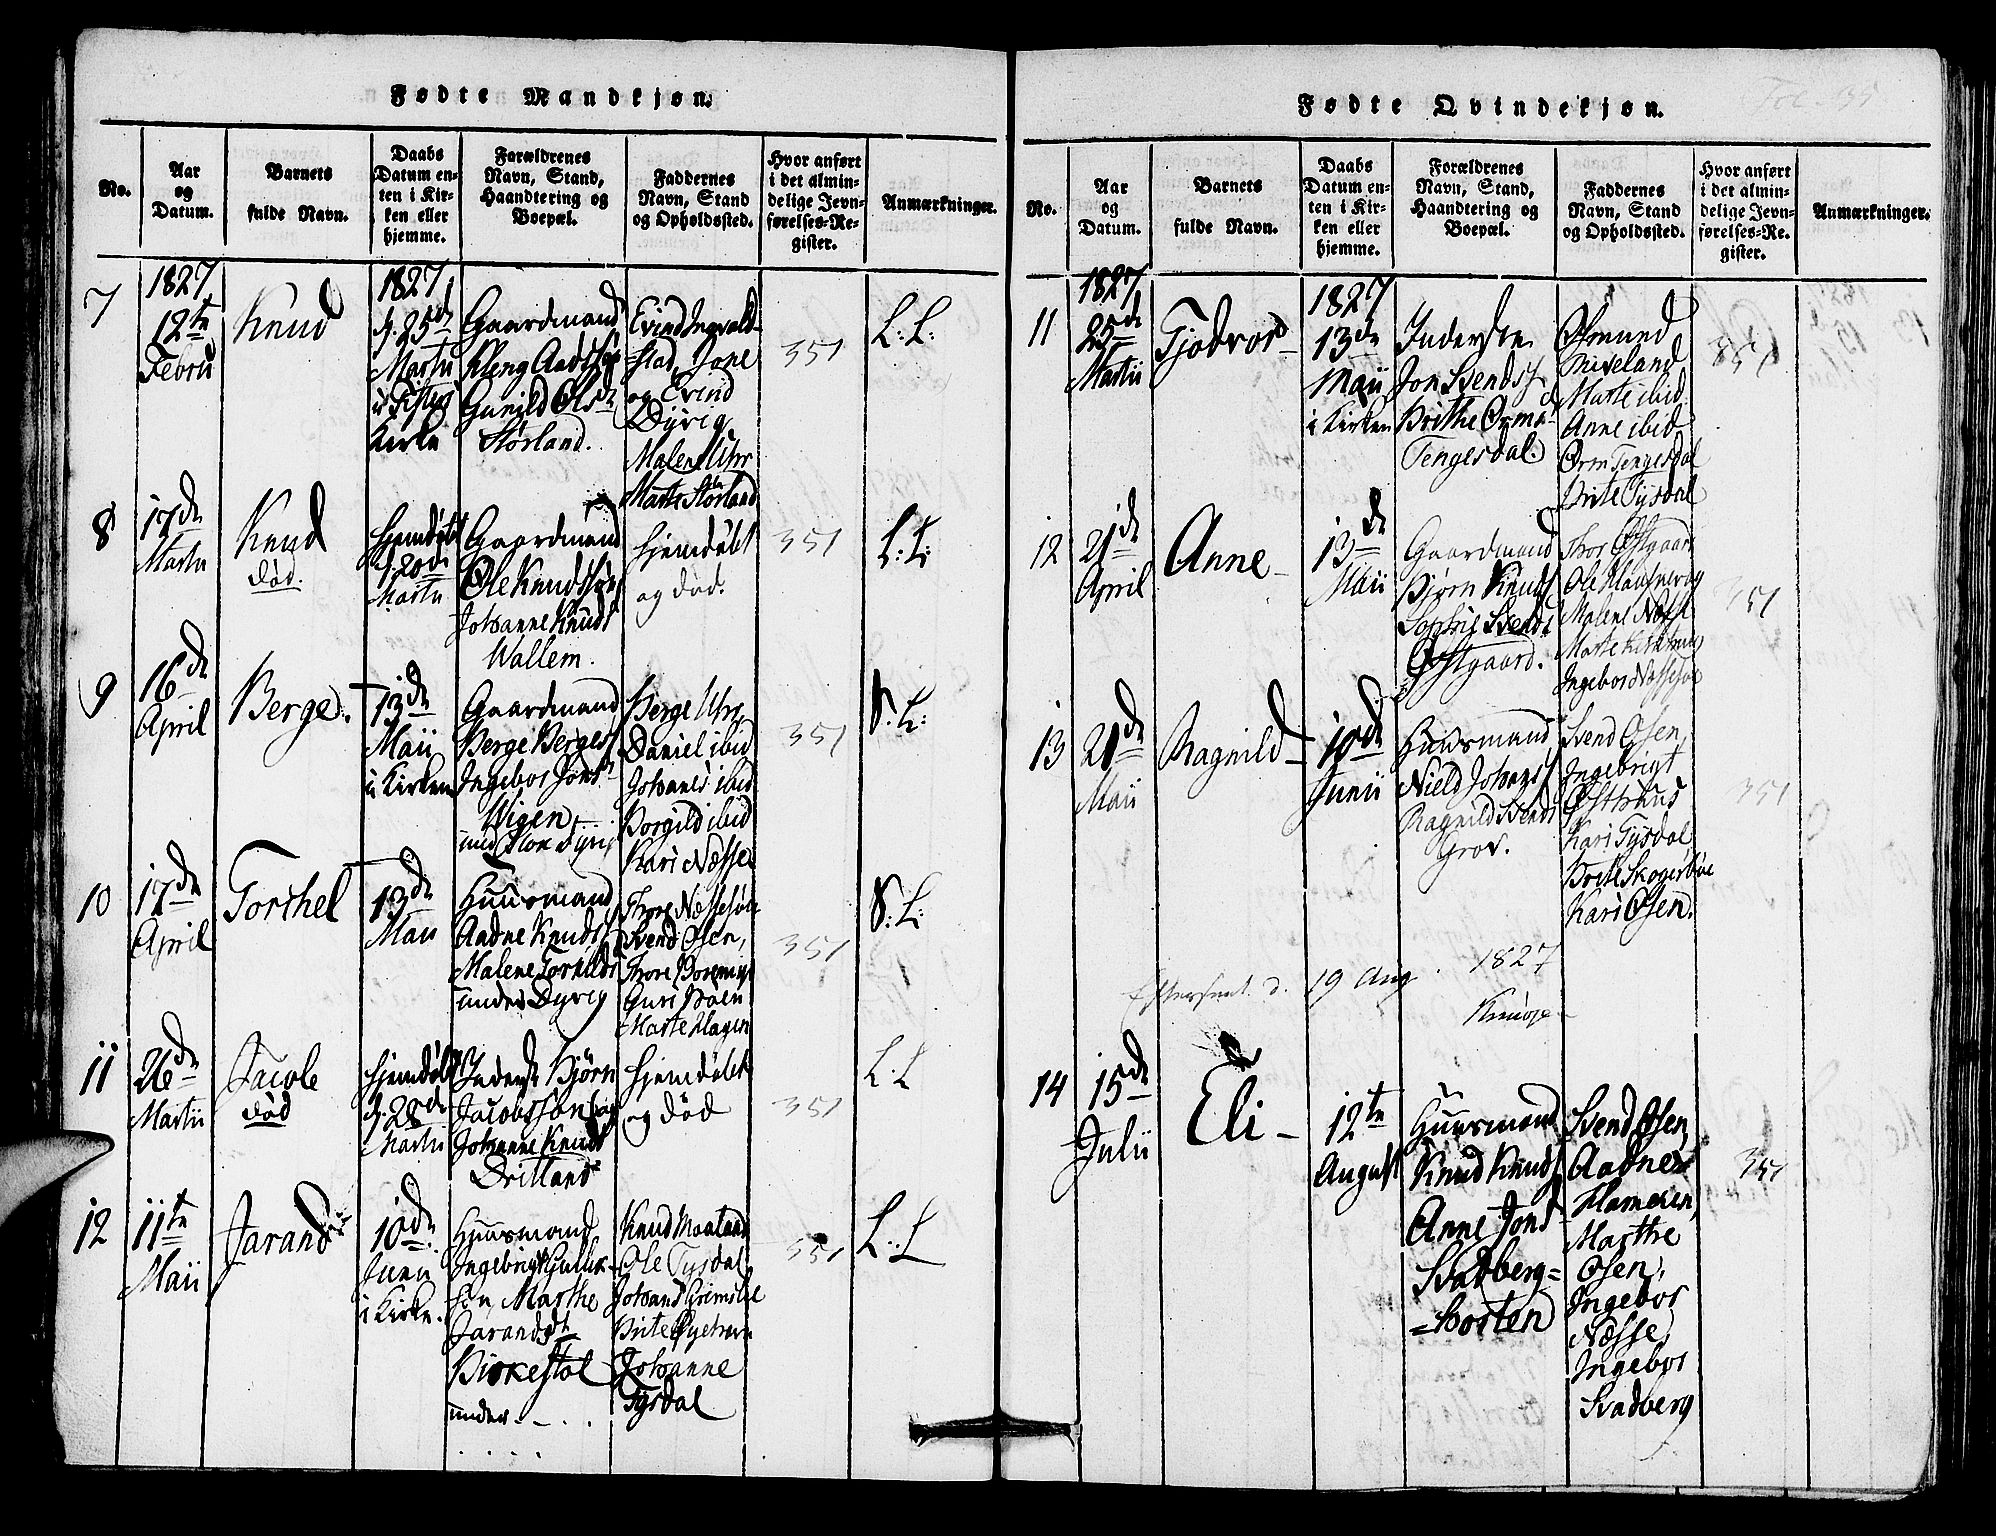 Fødte Mandkjøn.
No.
Aar
og
Datum.
Barnets
fulde Navn.
Daabs
Datum en-
ten i Kir-
ken eller
hjemme.
Forældrenes
Navn, Stand,
Haandtering og
Boepæl.
Faddernes
Navn, Stand
og Opholdssted.
Hvor anført
i det almin-
delige Jevn-
førelses-Re-
gister.
Anmærkninger.
7
1827
12te
Febru
Knud
1827
d. 25de
Martii
Kirke
Gaardmand
Gunild Olsd
Størland.
Evind Ingvald-
stad, Jone
og Evind
Dyrig
Malene Uhr
Marte Størland
351
L: L:
8
17de
Martii
Knud
død.
Hjemdøbt
d. 20de
Martii
Gaardmand
Ole Knudssøn
Johanne Knuds
Wallem.
Hjemdøbt
og død.
351
L: L:
9
16de
April
Berge
13de
Maii
i Kirken
Gaardmand
Berge Berges
Ingebor Jons
Wigen
Berge Uhr,
Daniel ibid
Johannes ibid
Borgild ibid
Kari Næsse
351
S: L:
10
17de
April
Torchel
13de
Maii
Huusmand
Aadne Knuds
Malene Torkilds
under Dyrig
Svend Osen,
Thore
Guri
Marte Hagen
351
S: L:
11
26de
Martii
Jacob
død
Hjemdøbt
d. 28de
Martii
Inderst Bjørn
Jacobssøn og
Johanne Knuds
Dritland
Hjemdøbt
og død
351
L: L
12
11te
Maii
Jarand
10de
Junii
i Kirken.
Huusmand
Ingebrigt
søn, Marthe
Jarandsdt
Birkestøl
under
Knud Maaland
Ole Tysdal
Brite
Johanne
Tysdal
351
L: L
Fødte Qvindekjøn.
Fol. 135
No.
Aar
og
Datum.
Barnets
fulde Navn.
Daabs
Datum en-
ten i Kir-
ken eller
hjemme.
Forældrenes
Navn, Stand,
Haandtering og
Boepæl.
Faddernes
Navn, Stand
og Opholdssted.
Hvor anført
i det almin-
delige Jevn-
førelses-Re-
gister.
Anmærkninger.
11
1827
25de
Martii
Tjodvor
1827
13de
Maii
i Kirken
Inderste
Jon Svends
Brithe Orms
Tengesdal.
Osmund
Marte ibid
Anne ibid
Orm Tengesdal
Brite Tysdal
351
12
21de
April
Anne
13de
Maii
Gaardmand
Bjørn Knuds
Sophie Svends
Østgaard.
Thor Østgaard
Malene Næsse
Marte
Ingebor
351
13
21de
Maii
Ragnild
10de
Junii
Huusmand
Niels Johans
Ragnild Svends
Grov.
Svend Osen,
Ingebrigt
Østhuus
Kari Tysdal
Brite
Kari Osen.
351
Eftersent. d. 19 Aug. 1827
14
15de
Julii
Eli
12te
August
Huusmand
Knud Knuds
Anne Jons
Svadberg=
=Horten
Svend Osen,
Aadne
Hameren,
Marthe
Osen,
Ingebor
Næsse,
Ingebor
Svadberg
351